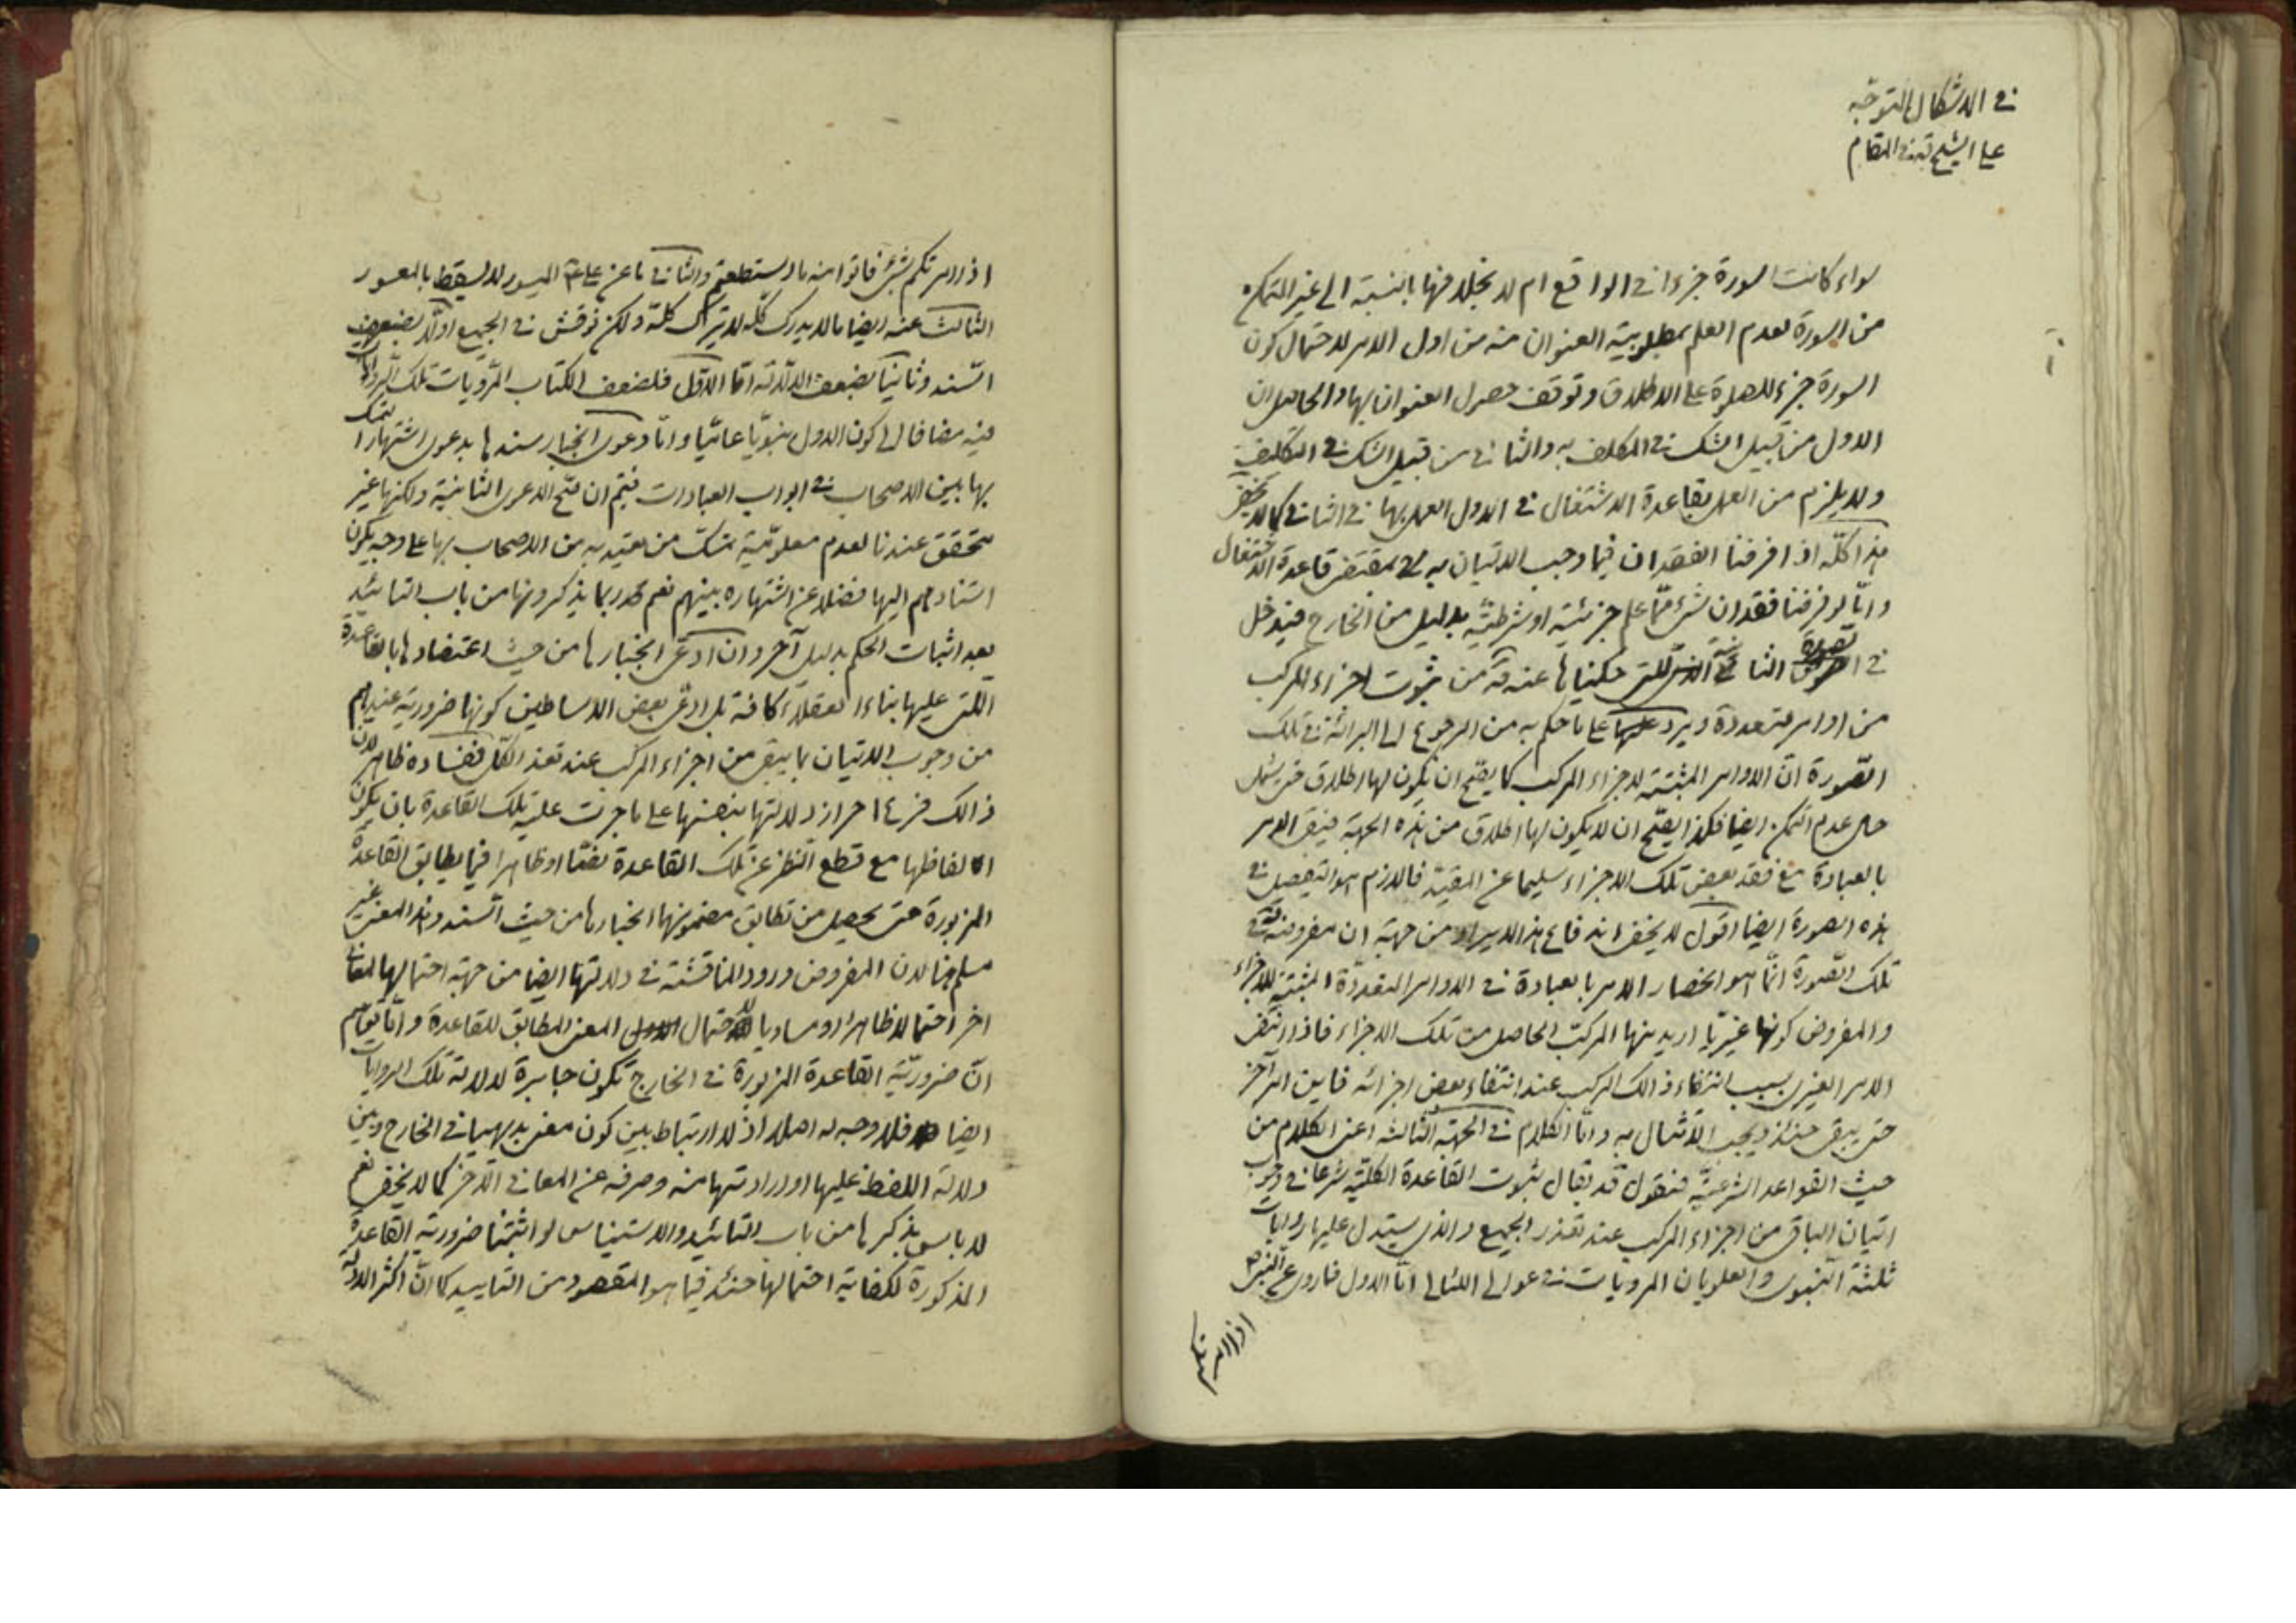 في الاشكال المتوجه
على الشيخ قده في المقام
سواء كانت السورة جزءا في الواقع ام لا بخلافها بالنسبة الى غير المتمكن
من السورة لعدم العلم بمطلوبية العنوان منه من اول الامر لاحتمال كون
السورة جزء للصلوة على الاطلاق وتوقف حصول العنوان بها والحاصل ان
الاول من قبيل الشك في المكلف به والثاني من قبيل الشك في التكليف
ولا يلزم من العمل بقاعدة الاشتغال في الاول العمل بها في الثاني كما لا يخفى
هذا كله اذا فرضنا الفقدان فيما وجب الاتيان به بمقتضى قاعدة الاشتغال
واما لو فرضنا فقدان شئ مما علم جزئيته او شرطيته بدليل من الخارج فيدخل
في الصورة الثانية التي حكيناها عنه قده من ثبوت اجزاء المركب
من اوامر متعددة ويرد على ما حكم به من الرجوع الى البرائة في تلك
الصورة ان الاوامر المثبتة لاجزاء المركب كما يصح ان يكون لها اطلاق حتى يشمل
حال عدم التمكن ايضا فكذا يصح ان لا يكون لها اطلاق من هذه الجهة فيبقى الامر
بالعبادة مع فقد بعض تلك الاجزاء سليما عن المقيد فاللازم هو التفصيل في
هذه الصورة ايضا اقول لا يخفى اندفاع هذا الايراد من جهة ان مفروضه قده في
تلك الصورة انما هو انحصار الامر بالعبادة في الاوامر المتعددة المثبتة للاجزاء
والمفروض كونها غيريا اريد منها المركب الحاصل من تلك الاجزاء فاذا انتفى
الامر الغيرى بسبب انتفاء ذالك المركب عند انتفاء بعض اجزائه فاين امر آخر
حتى يبقى حينئذ ويجب الامتثال به واما الكلام في الجهة الثالثة اعنى الكلام من
حيث القواعد الشرعية فنقول قد يقال بثبوت القاعدة الكلية شرعا في وجوب
اتيان الباقى من اجزاء المركب عند تعذر الجميع والذى يستدل عليها روايات
ثلثة النبوى والعلويان المرويات في عوالى اللئالى اما الاول فما روى عن النبى ص
اذا امرتكم
اذا امرتكم بشئ فاتوا منه ما استطعتم والثاني ما عن على ع الميسور لا يسقط بالمعسور
الثالث عنه ايضا ما لا يدرك كله لا يترك كله ولكن نوقش في الجميع اولا بضعف
السند وثانيا بضعف الدلالة اما الاول فلضعف الكتاب المرويات تلك الروايات
فيه مضافا الى كون الاول نبويا عاميا واما دعوى انجبار سندها بدعوى اشتهار التمسك
بها بين الاصحاب في ابواب العبادات فيتم ان تتم الدعوى الثانية ولكنها غير
متحقق عندنا لعدم معلومية تمسك من يعتد به من الاصحاب بها على وجه يكون
استنادهم اليها فضلا عن اشتهاره بينهم نعم ربما يذكرونها من باب التائيد
بعد اثبات الحكم بدليل آخر وان ادعى انجبارها من حيث اعتضادها بالقاعدة
التى عليها بناء العقلاء كافة بل ادعى بعض الاساطين كونها ضرورية عندهم
من وجوب الاتيان بما يبقى من اجزاء المركب عند تعذر الكل ففساده ظاهر لان
ذالك فرع احراز دلالتها بنفسها على ما جرت عليه تلك القاعدة بان يكون
الفاظها مع قطع النظر عن تلك القاعدة نصا او ظاهرا فيما يطابق القاعدة
المزبورة حتى يحصل من تطابق مضمونها انجبارها من حيث السند وهذا المعنى غير
مسلم هنا لان المفروض ورود المناقشة في دلالتها ايضا من جهة احتمالها لمعان
اخر احتمالا ظاهرا او مساويا لاحتمال المعنى المطابق للقاعدة واما توهم
ان ضرورية القاعدة المزبورة في الخارج تكون جابرة لدلالة تلك الروايات
ايضا فلا وجه له اصلا اذ لا ارتباط بين كون معنى بديهيا في الخارج وبين
دلالة اللفظ عليها او ارادتها منه وصرفه عن المعاني الاخر كما لا يخفى نعم
لا باس بذكرها من باب التائيد والاستيناس لو اثبتنا ضرورية القاعدة
المذكورة لكفاية احتمالها حينئذ فيما هو المقصود من التاييد كما ان اكثر الادلة